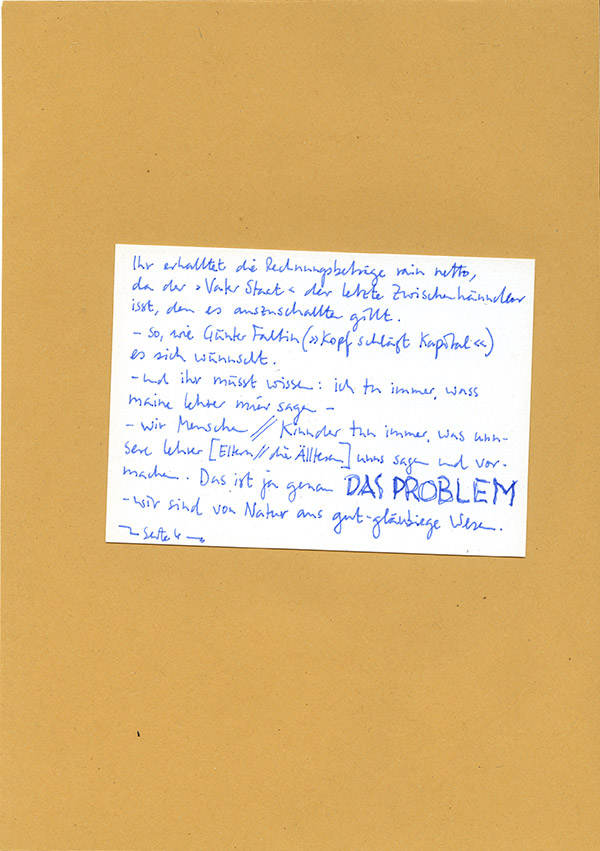 Ihr erhalltet die Rechnungsbeträge rain netto,
da der ›Vater Staat‹ der letzte Zwischenhänndler
isst, dem es auszuschallten gillt.
– so, wie Günter Faltin (»Kopf schlägt Kapital«)
es sich wünnscht.
– und ihr müsst wissen: ich tu immer, wass
maine lehrer mür sagen –
– wir Menschen // Kinnder tun immer, was unn-
sere lehrer [Eltern // die Älltesen] unns sagen und vor-
machen. Das ist ja genau DAS PROBLEM
– wir sind von Natur aus gut-gläubiege Wesen.
Seite 4